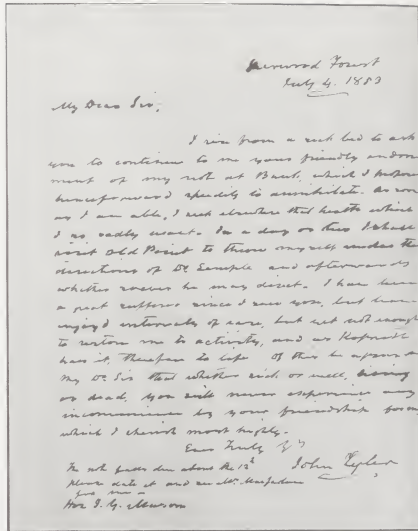 Sherwood Forest
July 4. 1853
My Dear Sir,
I rise from a sick bed to ask
you to continue to me your friendly endorse
ment of my note at Bank, which I propose
henceforward speedily to annihilate. As soon
as I am able, I seek elsewhere that health which
I so sadly want. In a day or two I shall
visit Old Point to throw myself under the
directions of Dr. Semple and afterwards
wherever he may direct. I have been
a great sufferer since I saw you, but have
enjoyd intervals of ease, but yet not enough
to restore me to activity, and as
has it, therefore to life. Of this be assured
My Dr. Sir that whether sick or well, living
or dead, you will never experience any
inconvenience by your friendship for me
which I cherish most highly.
Ever Truly Yrs
John Tyler
The note falls due about the 12th
please date it and see Mr.
Hon J. Y. Mason